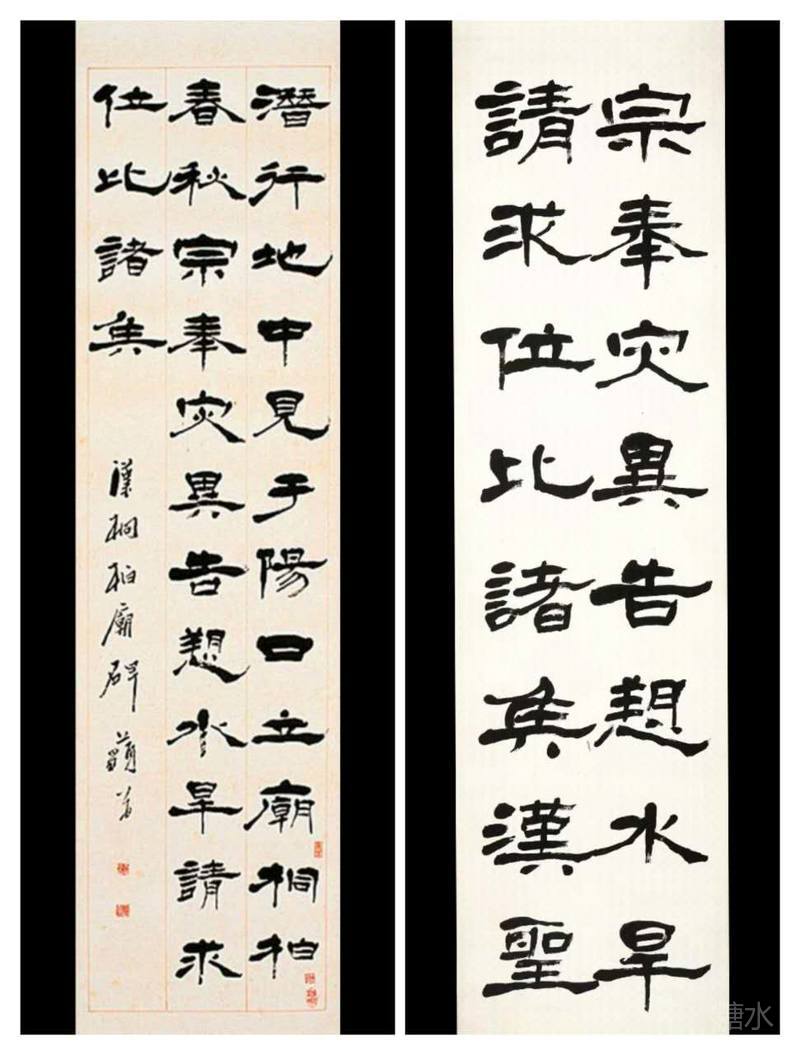 潛行地中見于陽口立廟桐柏
春秋宗奉灾異告愬水旱請求
位比諸矦
漢桐柏廟碑
宗奉灾異告愬水旱
請求位比諸矦漢聖
糖水